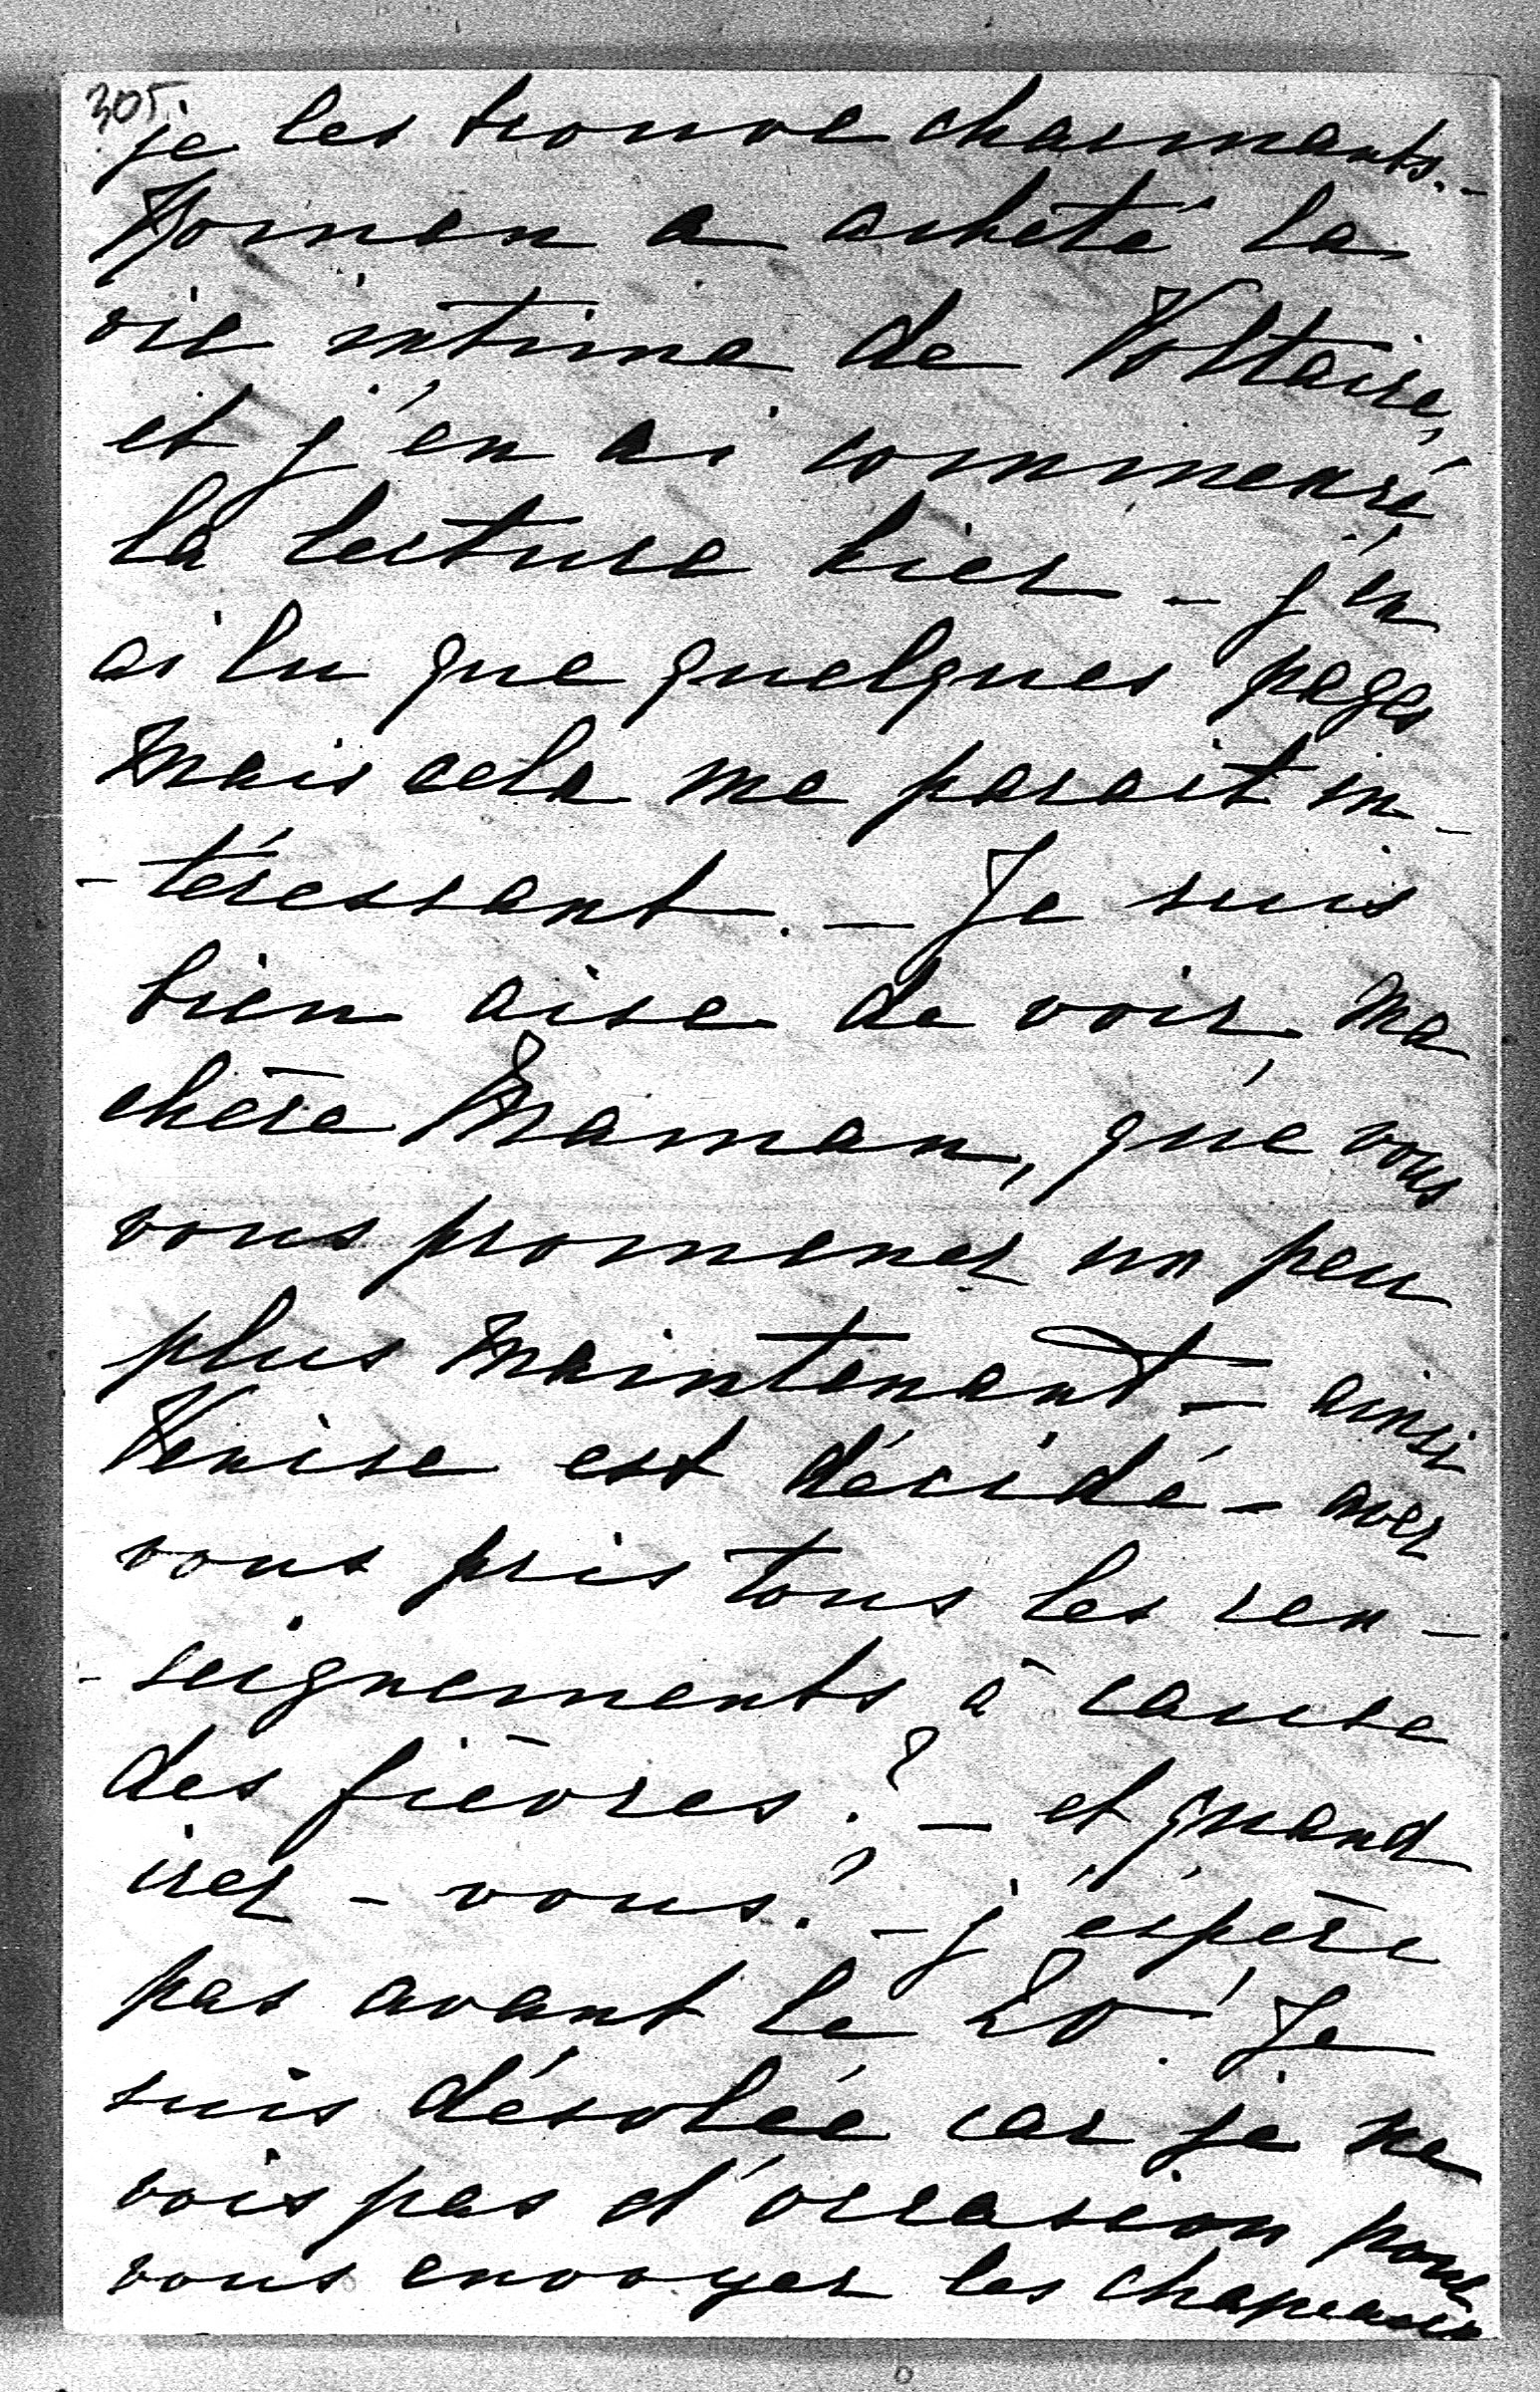 305.
je les trouve charmants. -
a acheté la
vie intime de Voltaire,
et j'en ai commencé
la lecture hier - j'en
ai lu que quelques pages
mais cela me parait in-
-téressant. - Je suis
bien aise de voir, ma
chère Maman, que vous
vous promenez un peu
plus maintenant - ainsi
Venise est décidé - avez
vous pris tous les ren-
-seignements à cause
des fièvres? - et quand
irez - vous? - j'espère
pas avant le 20! Je
suis désolée car je ne
vois pas d'occasion pour
vous envoyer les chapeaux